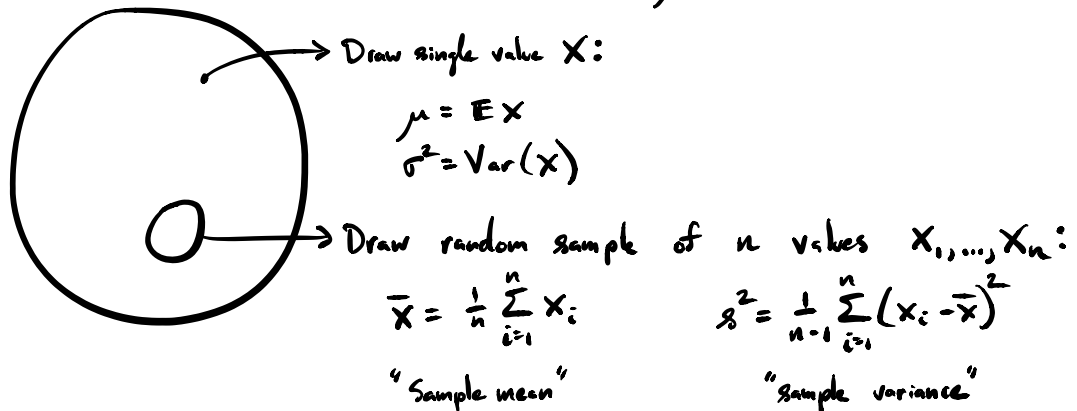 Draw single value X:
μ = 𝔼X
σ² = Var(X)
Draw random sample of n values X₁,...,Xₙ:
X̄ = 1/n ∑ᵢ₌₁ⁿ Xᵢ    s² = 1/(n-1) ∑ᵢ₌₁ⁿ (Xᵢ - X̄)²
"Sample mean"    "sample variance"